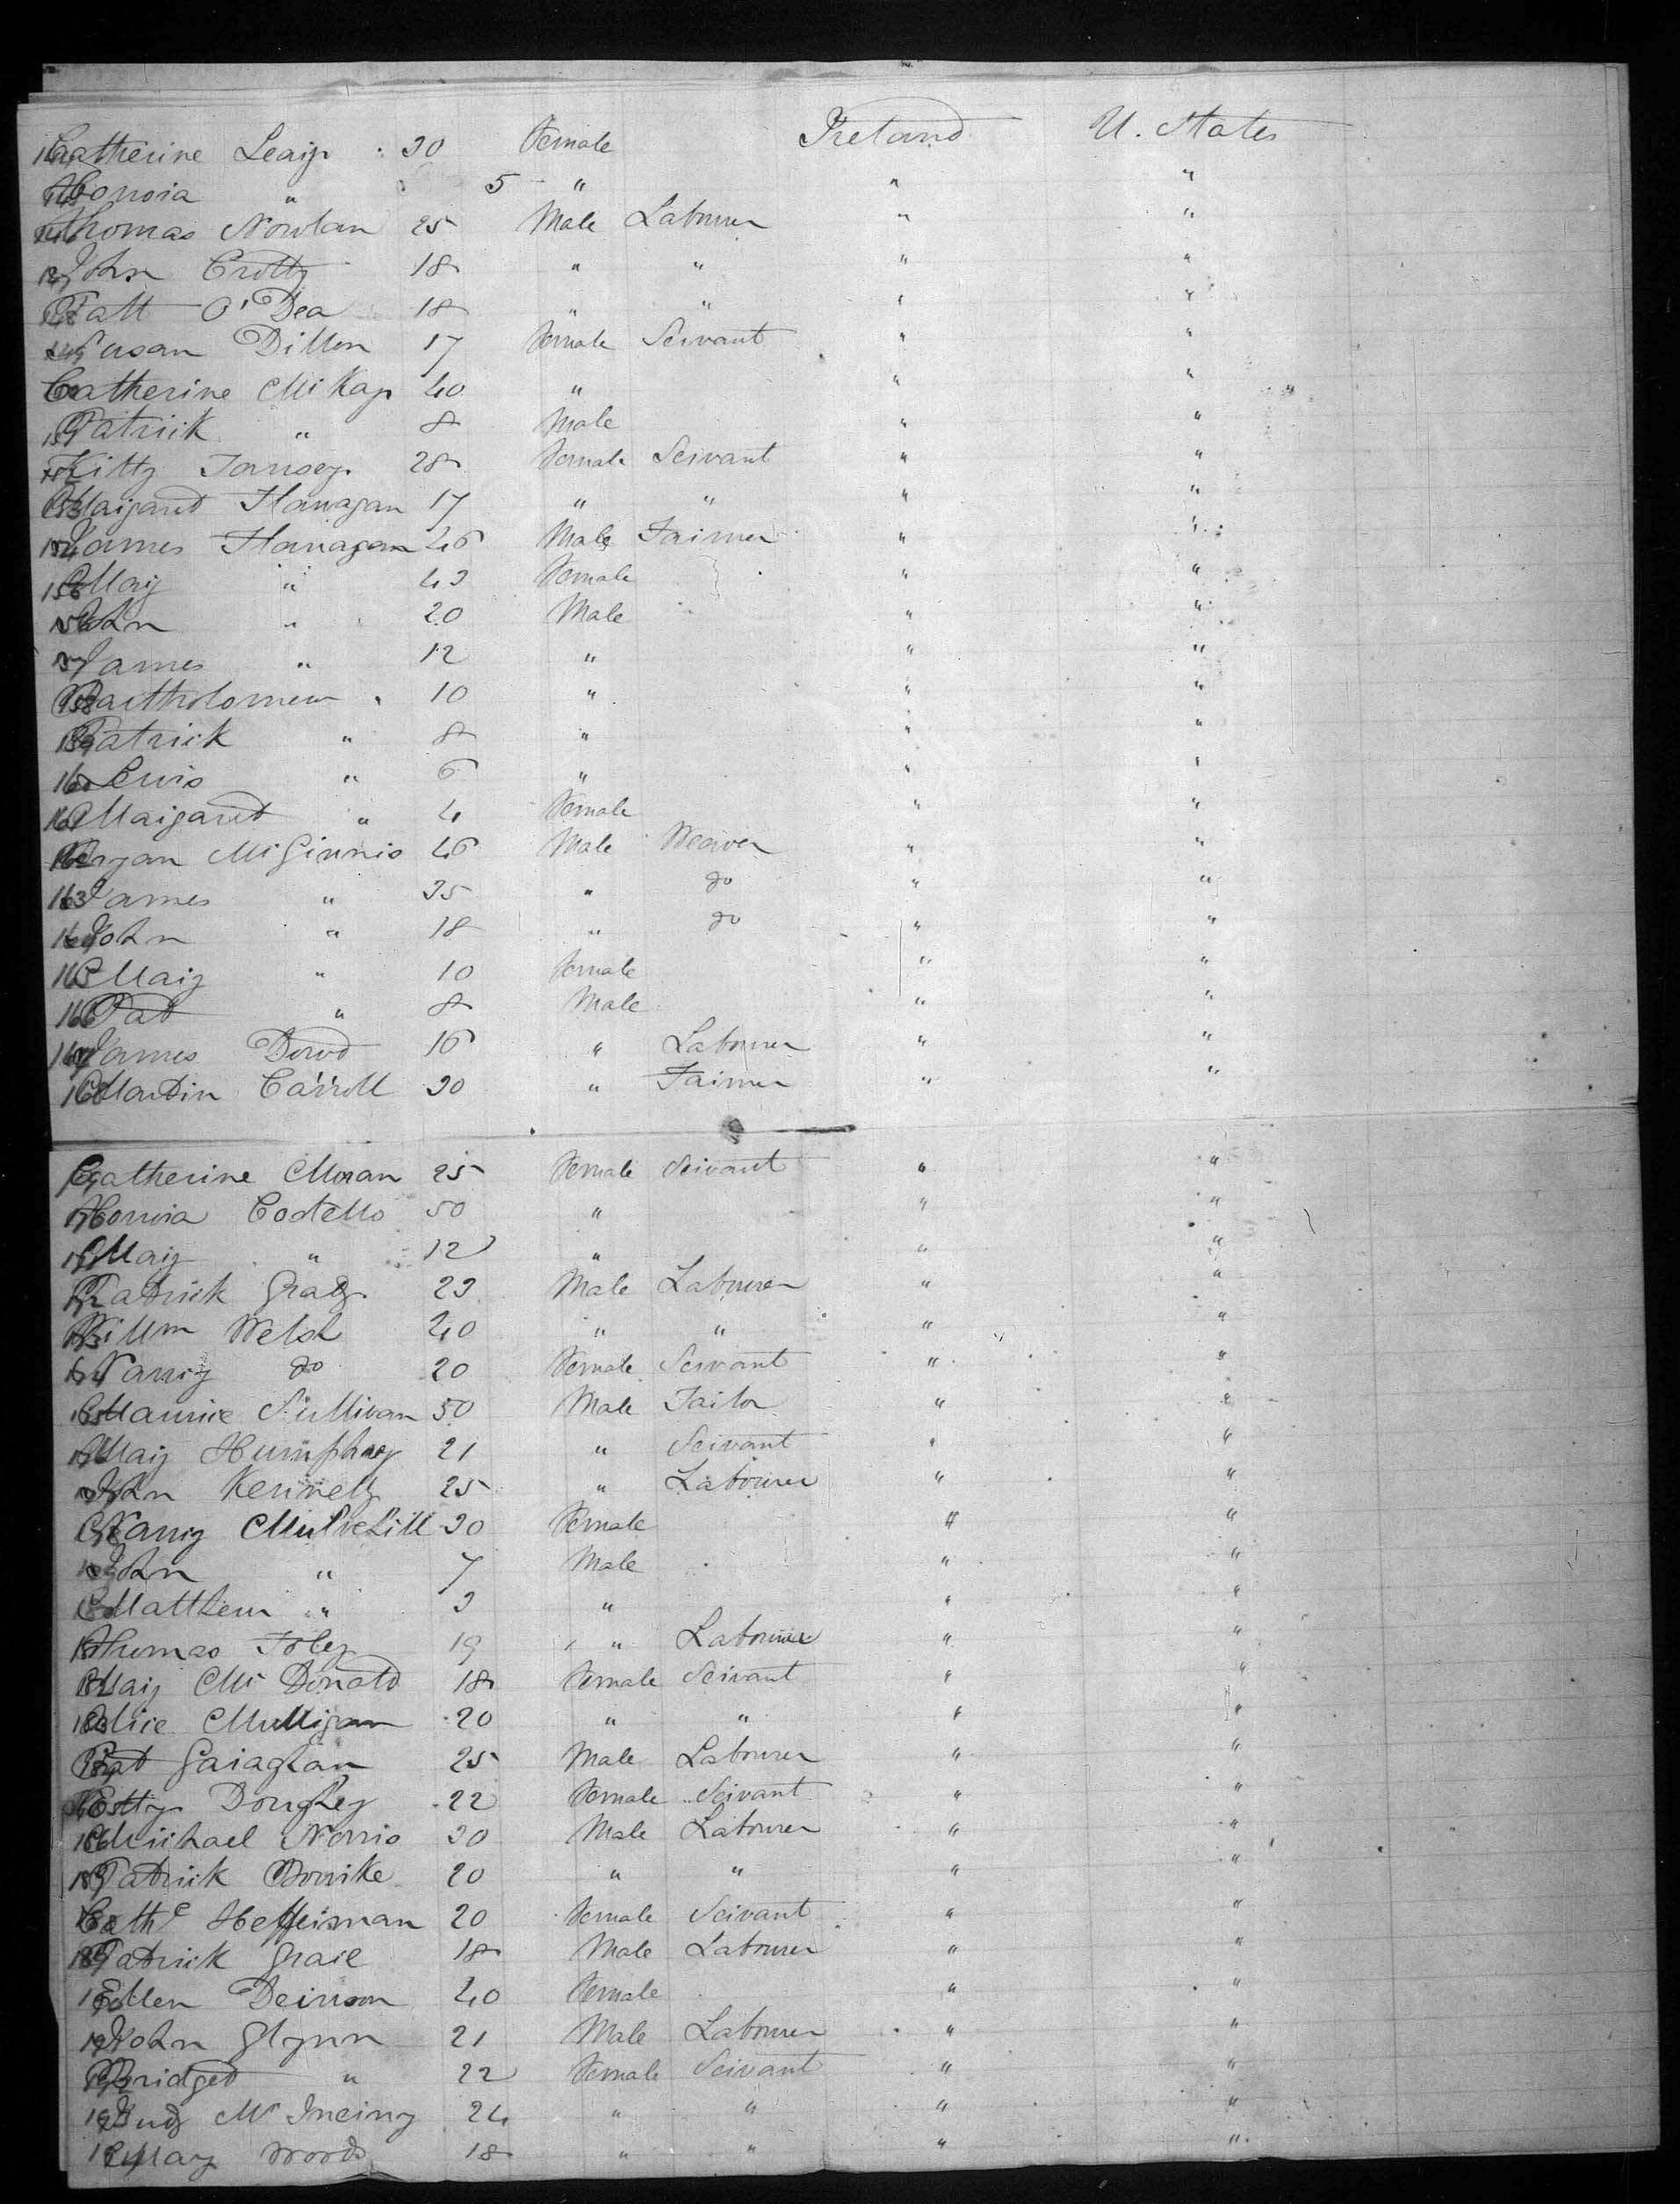 144 Catherine Leary 30 Female Ireland U. States
145 Honora " 5 " " "
146 Thomas Nowlan 25 Male Labourer " "
147 John Crotty 18 " " " "
148 Patt O'Dea 18 " " " "
149 Susan Dillon 17 Female Servant " "
150 Catherine McKay 40 " " "
151 Patrick " 8 Male " "
152 Kitty Tansey 28 Female Servant " "
153 Margaret Flanagan 17 " " " "
154 James Flanagan 46 Male Farmer " "
155 Mary " 43 Female " "
156 John " 20 Male " "
157 James " 12 " " "
158 Bartholomew " 10 " " "
159 Patrick " 8 " " "
160 Lewis " 6 " " "
161 Margaret " 4 Female " "
162 Bryan McGinnis 46 Male Weaver " "
163 James " 35 " do " "
164 John " 18 " do " "
165 Mary " 10 Female " "
166 Pat " 8 Male " "
167 James Dowd 16 " Labourer " "
168 Martin Carroll 30 " Farmer " "
169 Catherine Moran 25 Female Servant " "
170 Honora Costello 50 " " "
171 Mary " 12 " " "
172 Patrick 23 Male Labourer " "
173 Willm Welsh 40 " " " "
174 Nancy do 20 Female Servant " "
175 Maurice Sullivan 50 Male Tailor " "
176 Mary Humphrey 21 " Servant " "
177 John Kennely 25 " Labourer " "
178 Nancy Mulvehill 30 Female " "
179 John " 7 Male " "
180 Matthew " 3 " " "
181 Thomas Foley 19 " Labourer " "
182 Mary McDonald 18 Female Servant " "
183 Alice Mulligan 20 " " " "
184 Pat Garaghan 25 Male Labourer " "
185 Betty Doughey 22 Female Servant " "
186 Michael Norris 30 Male Labourer " "
187 Patrick Bourke 20 " " " "
188 Cathe Heffernan 20 Female Servant " "
189 Patrick Grace 18 Male Labourer " "
190 Ellen 40 Female " "
191 John Glynn 21 Male Labourer " "
192 Bridget " 22 Female Servant " "
193 Judy 24 " " " "
194 Mary Woods 18 " " " "